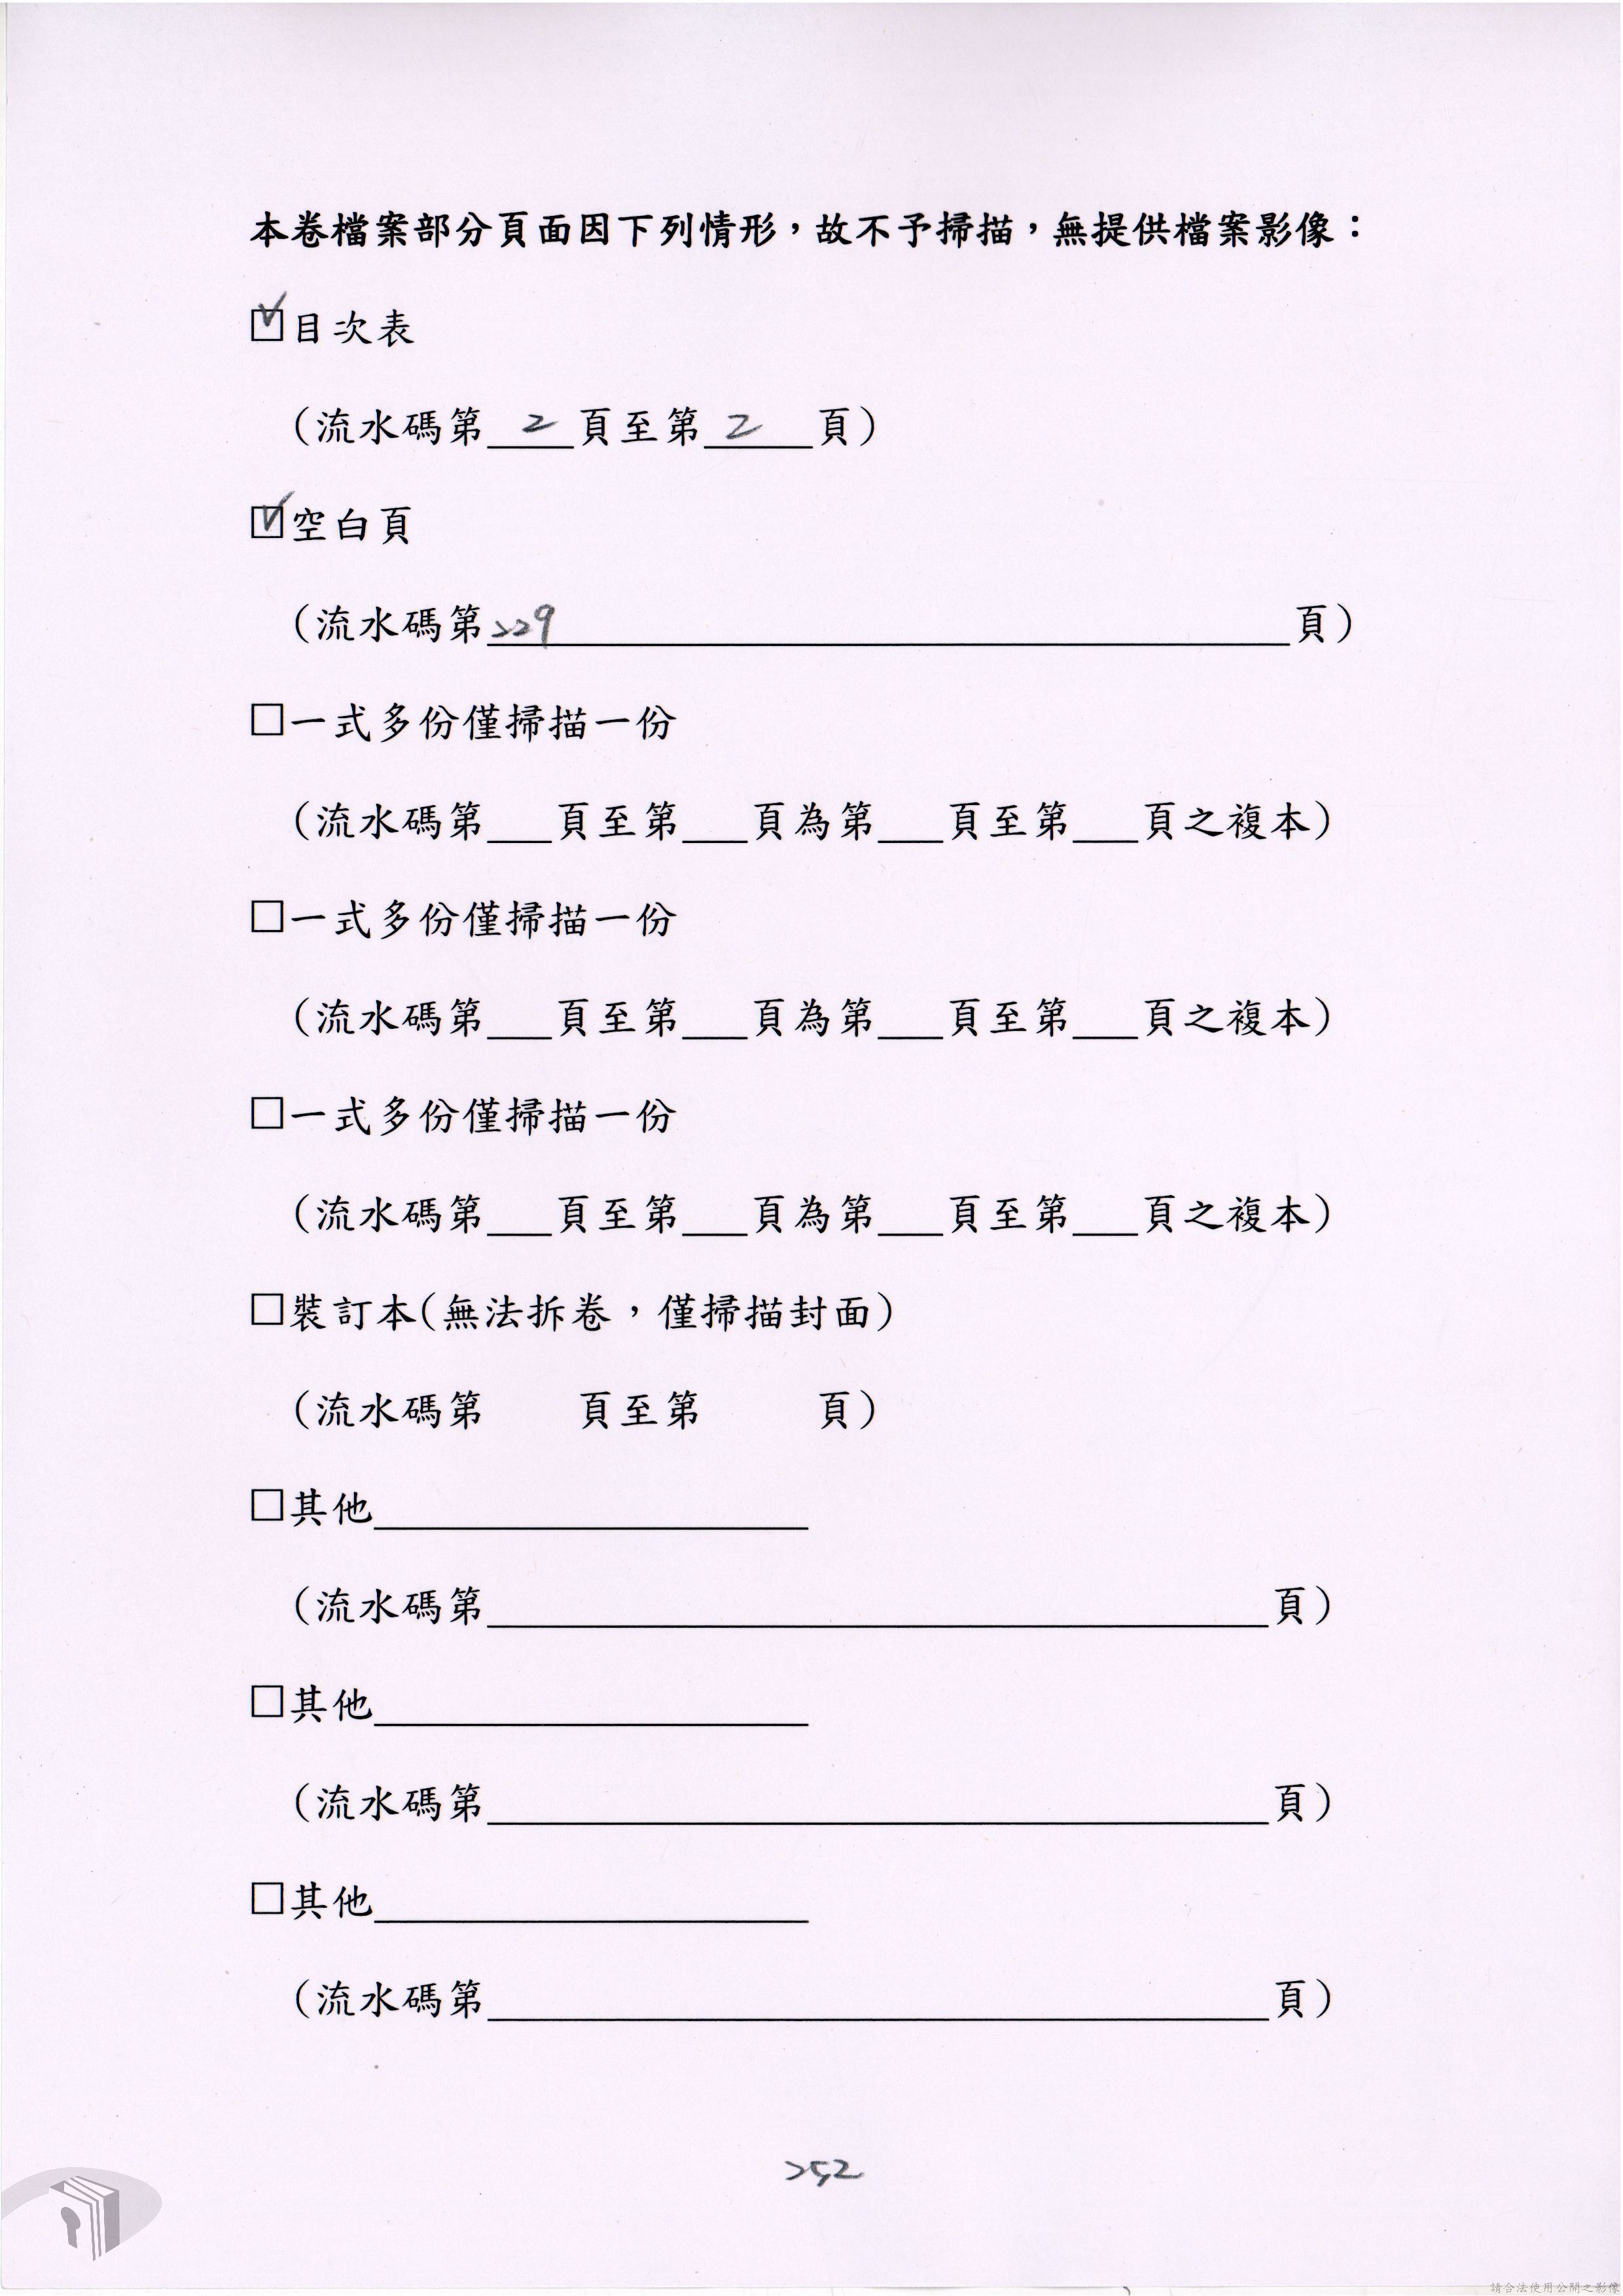 本卷檔案部分頁面因下列情形，故不予掃描，無提供檔案影像：
☑目次表
（流水碼第 2 頁至第 2 頁）
☑空白頁
（流水碼第229頁）
□一式多份僅掃描一份
（流水碼第___頁至第___頁為第___頁至第___頁之複本）
□一式多份僅掃描一份
（流水碼第___頁至第___頁為第___頁至第___頁之複本）
□一式多份僅掃描一份
（流水碼第___頁至第___頁為第___頁至第___頁之複本）
□裝訂本(無法拆卷，僅掃描封面)
（流水碼第 頁至第 頁）
□其他____________________
（流水碼第____________________頁）
□其他____________________
（流水碼第____________________頁）
□其他____________________
（流水碼第____________________頁）
252
請合法使用公開之影像